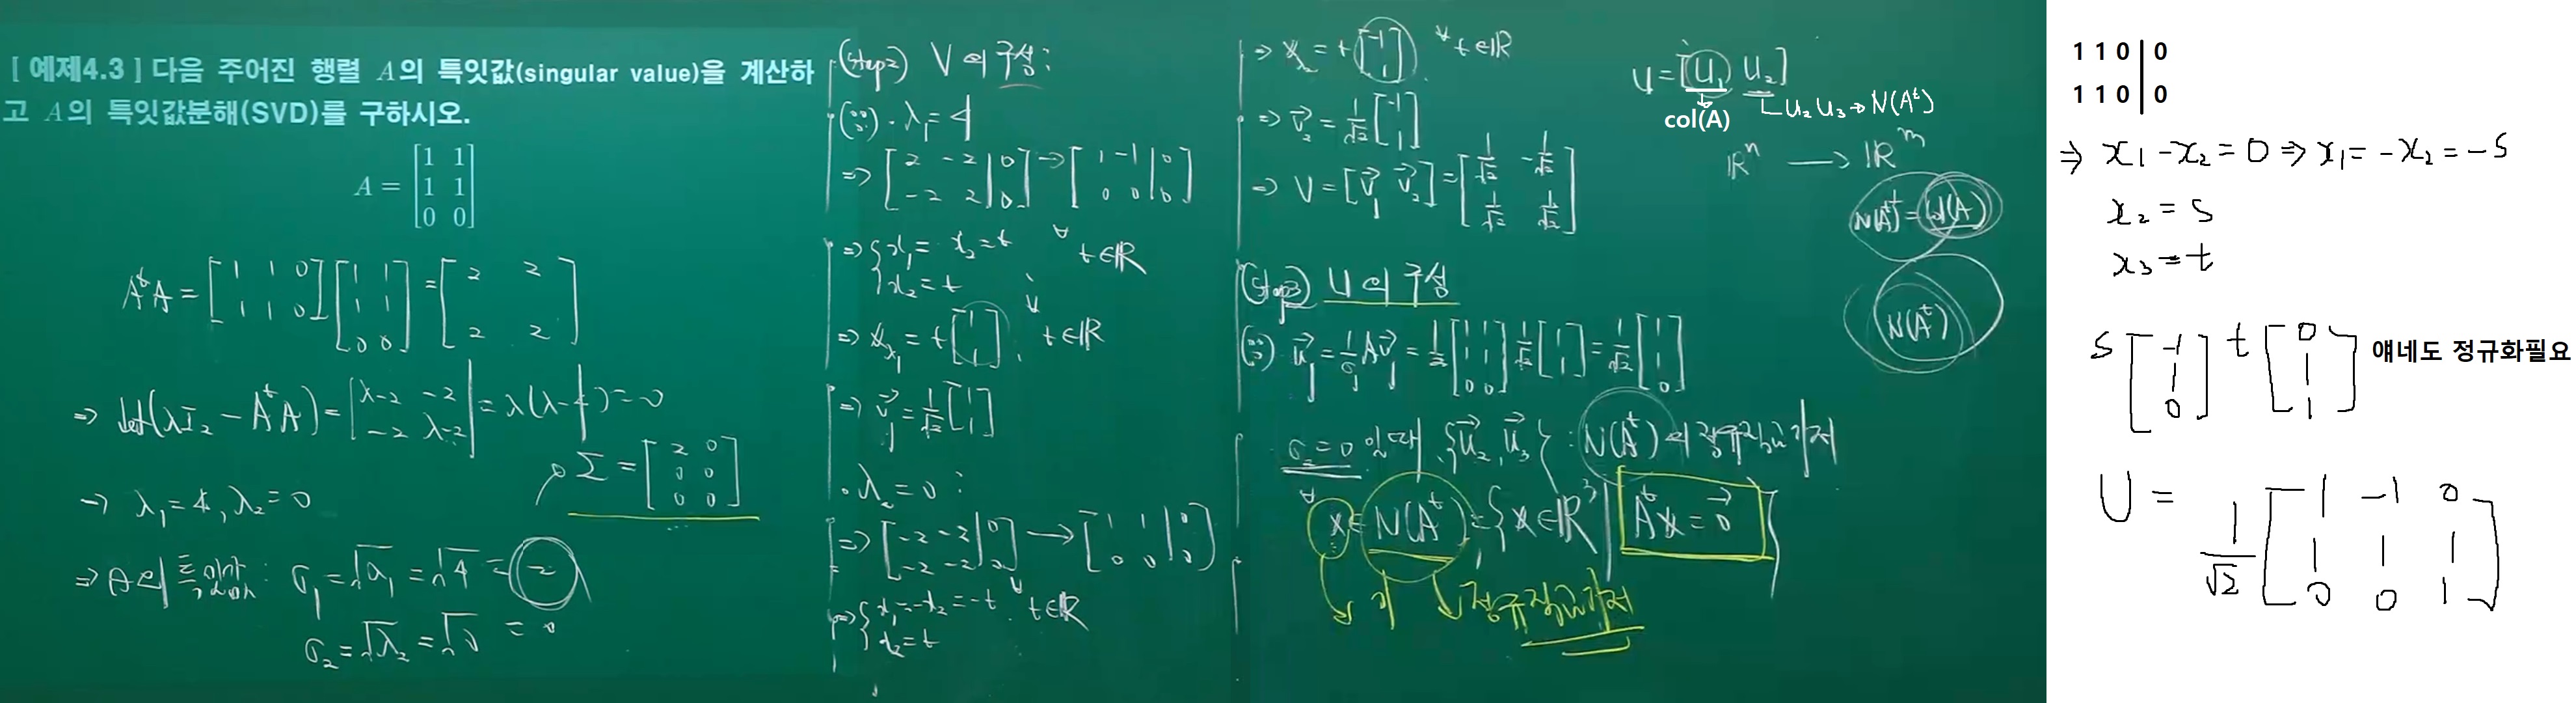 [ 예제4.3 ] 다음 주어진 행렬 A의 특잇값(singular value)을 계산하
고 A의 특잇값분해(SVD)를 구하시오.
A = [1 1
1 1
0 0]
AᵗA = [1 1 0
1 1 0] [1 1
1 1
0 0] = [2 2
2 2]
⇒ det(λI₂ − AᵗA) = |λ−2 −2
−2 λ−2| = λ(λ−4) = 0
→ λ₁ = 4, λ₂ = 0
Σ = [2 0
0 0
0 0]
⇒ A의 특잇값 : σ₁ = √λ₁ = √4 = 2
σ₂ = √λ₂ = √0 = 0
(Step2) V의 구성:
(∵) · λ₁ = 4
⇒ [2 −2 | 0
−2 2 | 0] → [1 −1 | 0
0 0 | 0]
⇒ { x₁ = x₂ = t
x₂ = t
∀t∈ℝ
⇒ 𝕩₁ = t [1
1], ∀t∈ℝ
⇒ v⃗₁ = 1/√2 [1
1]
· λ₂ = 0 :
⇒ [−2 −2 | 0
−2 −2 | 0] → [1 1 | 0
0 0 | 0]
⇒ { x₁ = −x₂ = −t
x₂ = t
∀t∈ℝ
⇒ 𝕩₂ = t [−1
1], ∀t∈ℝ
⇒ v⃗₂ = 1/√2 [−1
1]
⇒ V = [v⃗₁ v⃗₂] = [1/√2 −1/√2
1/√2 1/√2]
(Step3) U의 구성
(∵) u⃗₁ = 1/σ₁ Av⃗₁ = 1/2 [1 1
1 1
0 0] 1/√2 [1
1] = 1/√2 [1
1
0]
σ₂ = 0 인 {u⃗₂, u⃗₃} : N(Aᵗ)의 정규직교기저
∀𝕩 ∈ N(Aᵗ) = {𝕩∈ℝ³ | Aᵗ𝕩 = 0⃗}
정규직교기저
U = [U₁ U₂]
col(A)
U₂ U₃ → N(Aᵗ)
ℝⁿ → ℝᵐ
col(A)
N(Aᵗ)
1 1 0 | 0
1 1 0 | 0
⇒ x₁ − x₂ = 0 ⇒ x₁ = −x₂ = −s
x₂ = s
x₃ = t
s [−1
1
0] t [0
1
1] 얘네도 정규화필요
U = 1/√2 [1 −1 0
1 1 1
0 0 1]